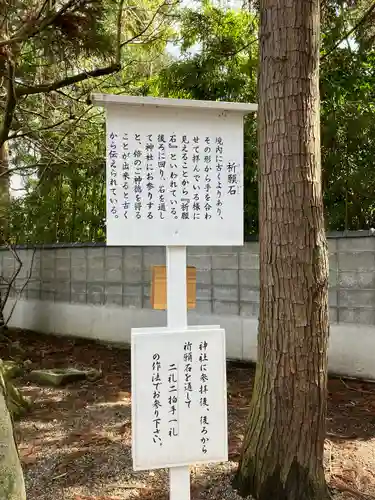 祈願石
境内に古くよりあり、
その形から手を合わ
せて拝んでいる様に
見えることから『祈願
石』といわれている。
後ろに回り、石を通し
て神社にお参りする
と、倍のご神徳を得る
ことが出来ると、古く
から伝えられている。
神社に参拝後、後ろから
祈願石を通して
二礼二拍手一礼
の作法でお参り下さい。